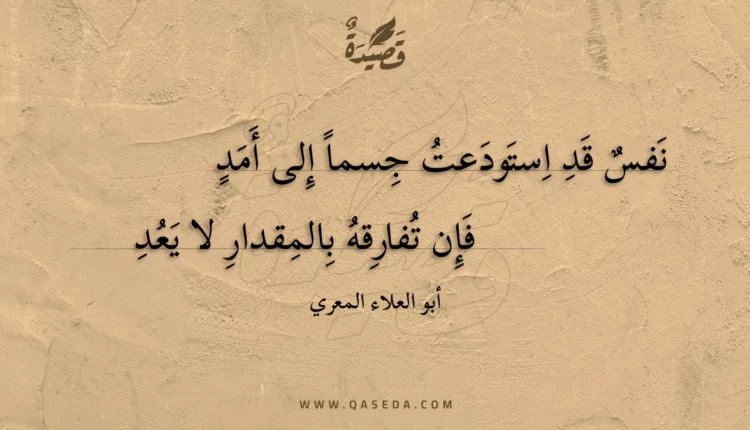 قَصِيدَةٌ
نَفسٌ قَدِ اِستَودَعتُ جِسماً إِلى أَمَدٍ
فَإِن تُفارِقهُ بِالمِقدارِ لا يَعُدِ
أبو العلاء المعري
WWW.QASEDA.COM